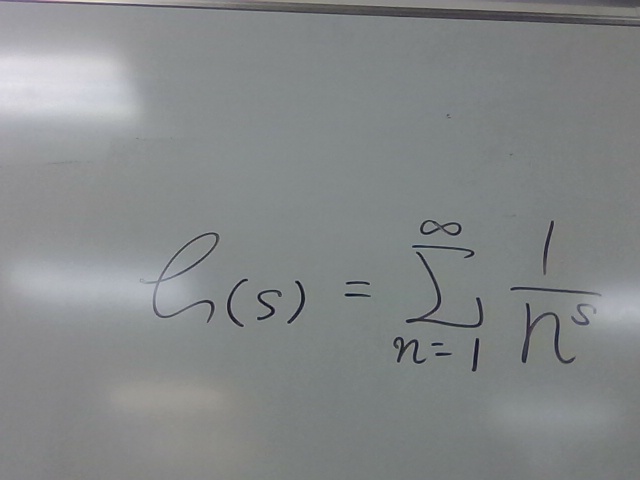 ζ(s) = ∑_{n=1}^{∞} \frac{1}{n^s}